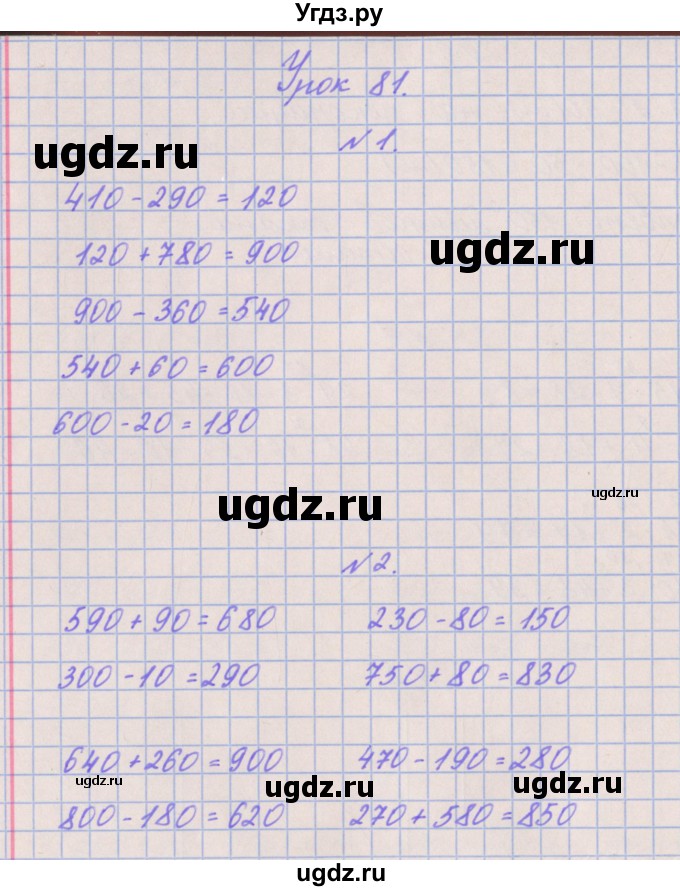 Угдз.ру
Урок 81.
ugdz.ru
№1.
410 - 290 = 120
120 + 780 = 900
ugdz.ru
900 - 360 = 540
540 + 60 = 600
600 - 20 = 180
ugdz.ru
ugdz.ru
№2.
590 + 90 = 680 230 - 80 = 150
300 - 10 = 290 750 + 80 = 830
640 + 260 = 900 470 - 190 = 280
ugdz.ru ugdz.ru ugdz.ru
800 - 180 = 620 270 + 580 = 850
ugdz.ru